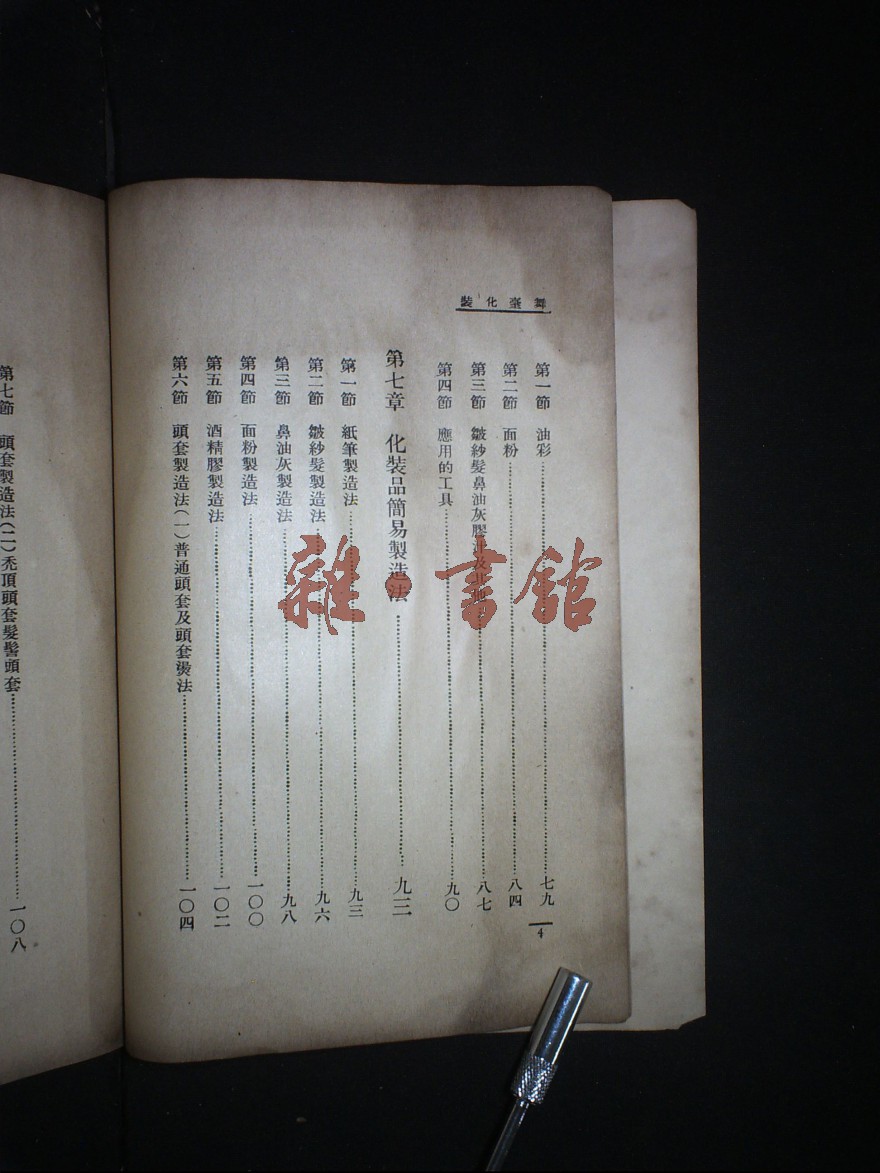 舞臺化裝
第一節 油彩 七九
第二節 面粉 八四
第三節 皺紗髮鼻油灰膠 八七
第四節 應用的工具 九〇
第七章 化裝品簡易製造法 九三
第一節 紙筆製造法 九三
第二節 皺紗髮製造法 九六
第三節 鼻油灰製造法 九八
第四節 面粉製造法 一〇〇
第五節 酒精膠製造法 一〇二
第六節 頭套製造法(一)普通頭套及頭套燙法 一〇四
4
第七節 頭套製造法(二)禿頂頭套髮髻頭套 一〇八
雜·書館